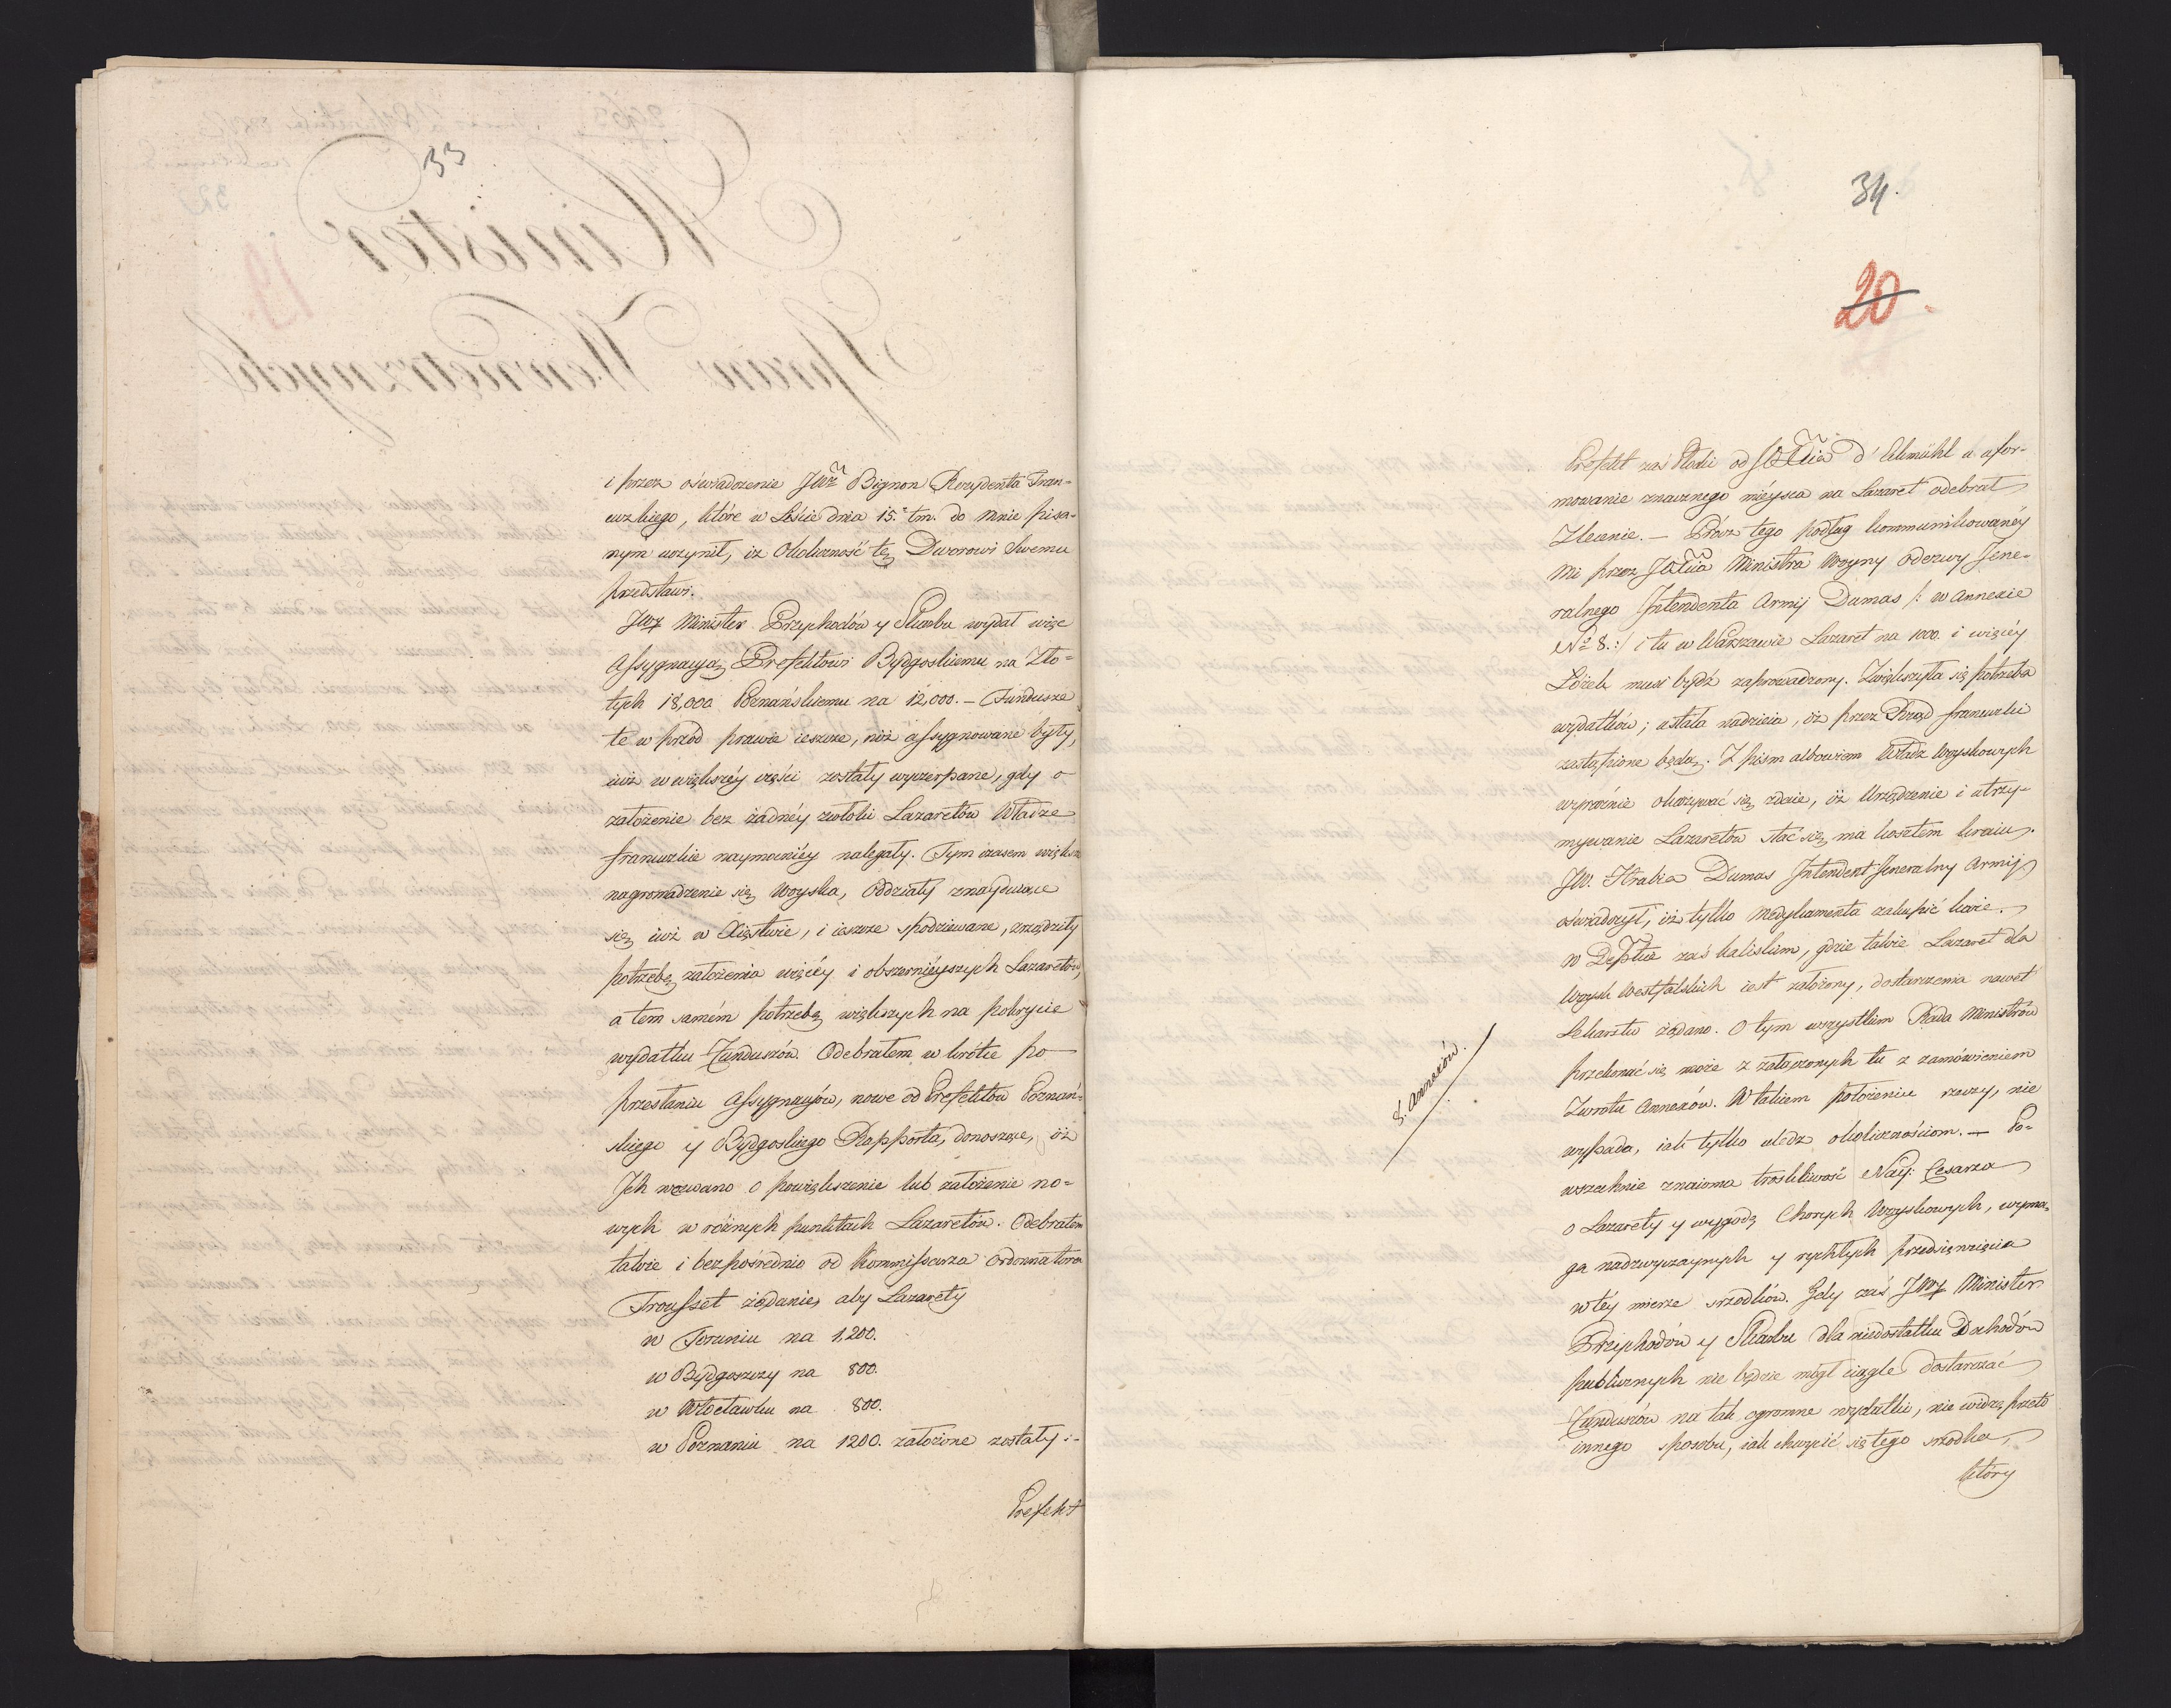 33
i przez oświadczenie JWo Bignon Rezydenta Fran-
cuzkiego, które w Liście dnia 15. tm. do mnie pisa-
nym uczynił, iz Okoliczność tę Dworowi Swemu
przedstawi.
JWy Minister Przychodów y Skarbu wydał więc
Assygnacyą Prefektowi Bydgoskiemu na Zło-
tych 18,000 Poznańskiemu na 12,000. – Fundusze
te w przód prawie ieszcze, niż assygnowane były,
iuż w większéy części zostały wyczerpane, gdy o
założenie bez żadnéy zwłoki Lazaretów Władze
francuzkie naymocniéy nalegały. Tym czasem większe
nagromadzenie się Woyska, Oddziały znayduiące
się iuż w Xięstwie, i ieszcze spodziewane, zrządziły
potrzebę założenia więcéy i obszernieyszych Lazaretów,
a tem samém potrzebę większych na pokrycie
wydatku Funduszów. Odebrałem w krótce po
przesłaniu Assygnacyów, nowe od Prefektów Poznań-
skiego y Bydgoskiego Rapporta, donoszące, iż
Ich wezwano o powiększenie lub założenie no-
wych w różnych punktach Lazaretów. Odebrałem
także i bezpośrednio od Kommissarza Ordonnatora
Trousset żądanie, aby Lazarety
w Toruniu na 1,200.
w Bydgoszczy na 800.
w Włocławku na 800.
w Poznaniu na 1200. założone zostały :-
Prefekt
34.
20
Prefekt zaś Płocki od d'Ekmühl a ufor-
mowanie znacznego mieysca na Lazaret odebrał
Zlecenie. – Prócz tego podług kommunikowanéy
mi przez Ministra Woyny Odezwy Jene-
ralnego Intendenta Armij Dumas /: w Annexie
No 8. :/ i tu w Warszawie Lazaret na 1000. i więcéy
Łóżek musi bydź zaprowadzony. Zwiększyła się potrzeba
wydatków; ustała nadzieia, iż przez Rząd francuzki
zastąpione będą. Z pism albowiem Władz Woyskowych
wyraźnie okazywać się zdaie, iż Urządzenie i utrzy-
mywanie Lazaretów stać się ma kosztem kraiu.
JW. Hrabia Dumas Intendent Jeneralny Armij
oświadczył, iż tylko Medykamenta zakupić każe.
w Depttie zaś kaliskim, gdzie także Lazaret dla
Woysk Westfalskich iest założony, dostarczenia nawet
Lekarstw żądano. O tym wszystkim Rada Ministrów
przekonać się może z załączonych tu z zamówieniem
8. Annexów.
Zwrotu Annexów. W takiem położeniu rzeczy, nie
wypada, iak tylko uledz okolicznościom. – Po-
wszechnie znaioma troskliwość Nay: Cesarza
o Lazarety y wygodę Chorych Woyskowych, wyma-
ga nadzwyczaynych y rychłych przedsięwzięcia
w téy mierze srzodków. Gdy zaś JWy Minister
Przychodów y Skarbu dla niedostatku Dochodów
publicznych nie będzie mógł ciągle dostarczać
Funduszów na tak ogromne wydatki, nie widzę przeto
innego sposobu, iak chwycić się tego srzodka,
który